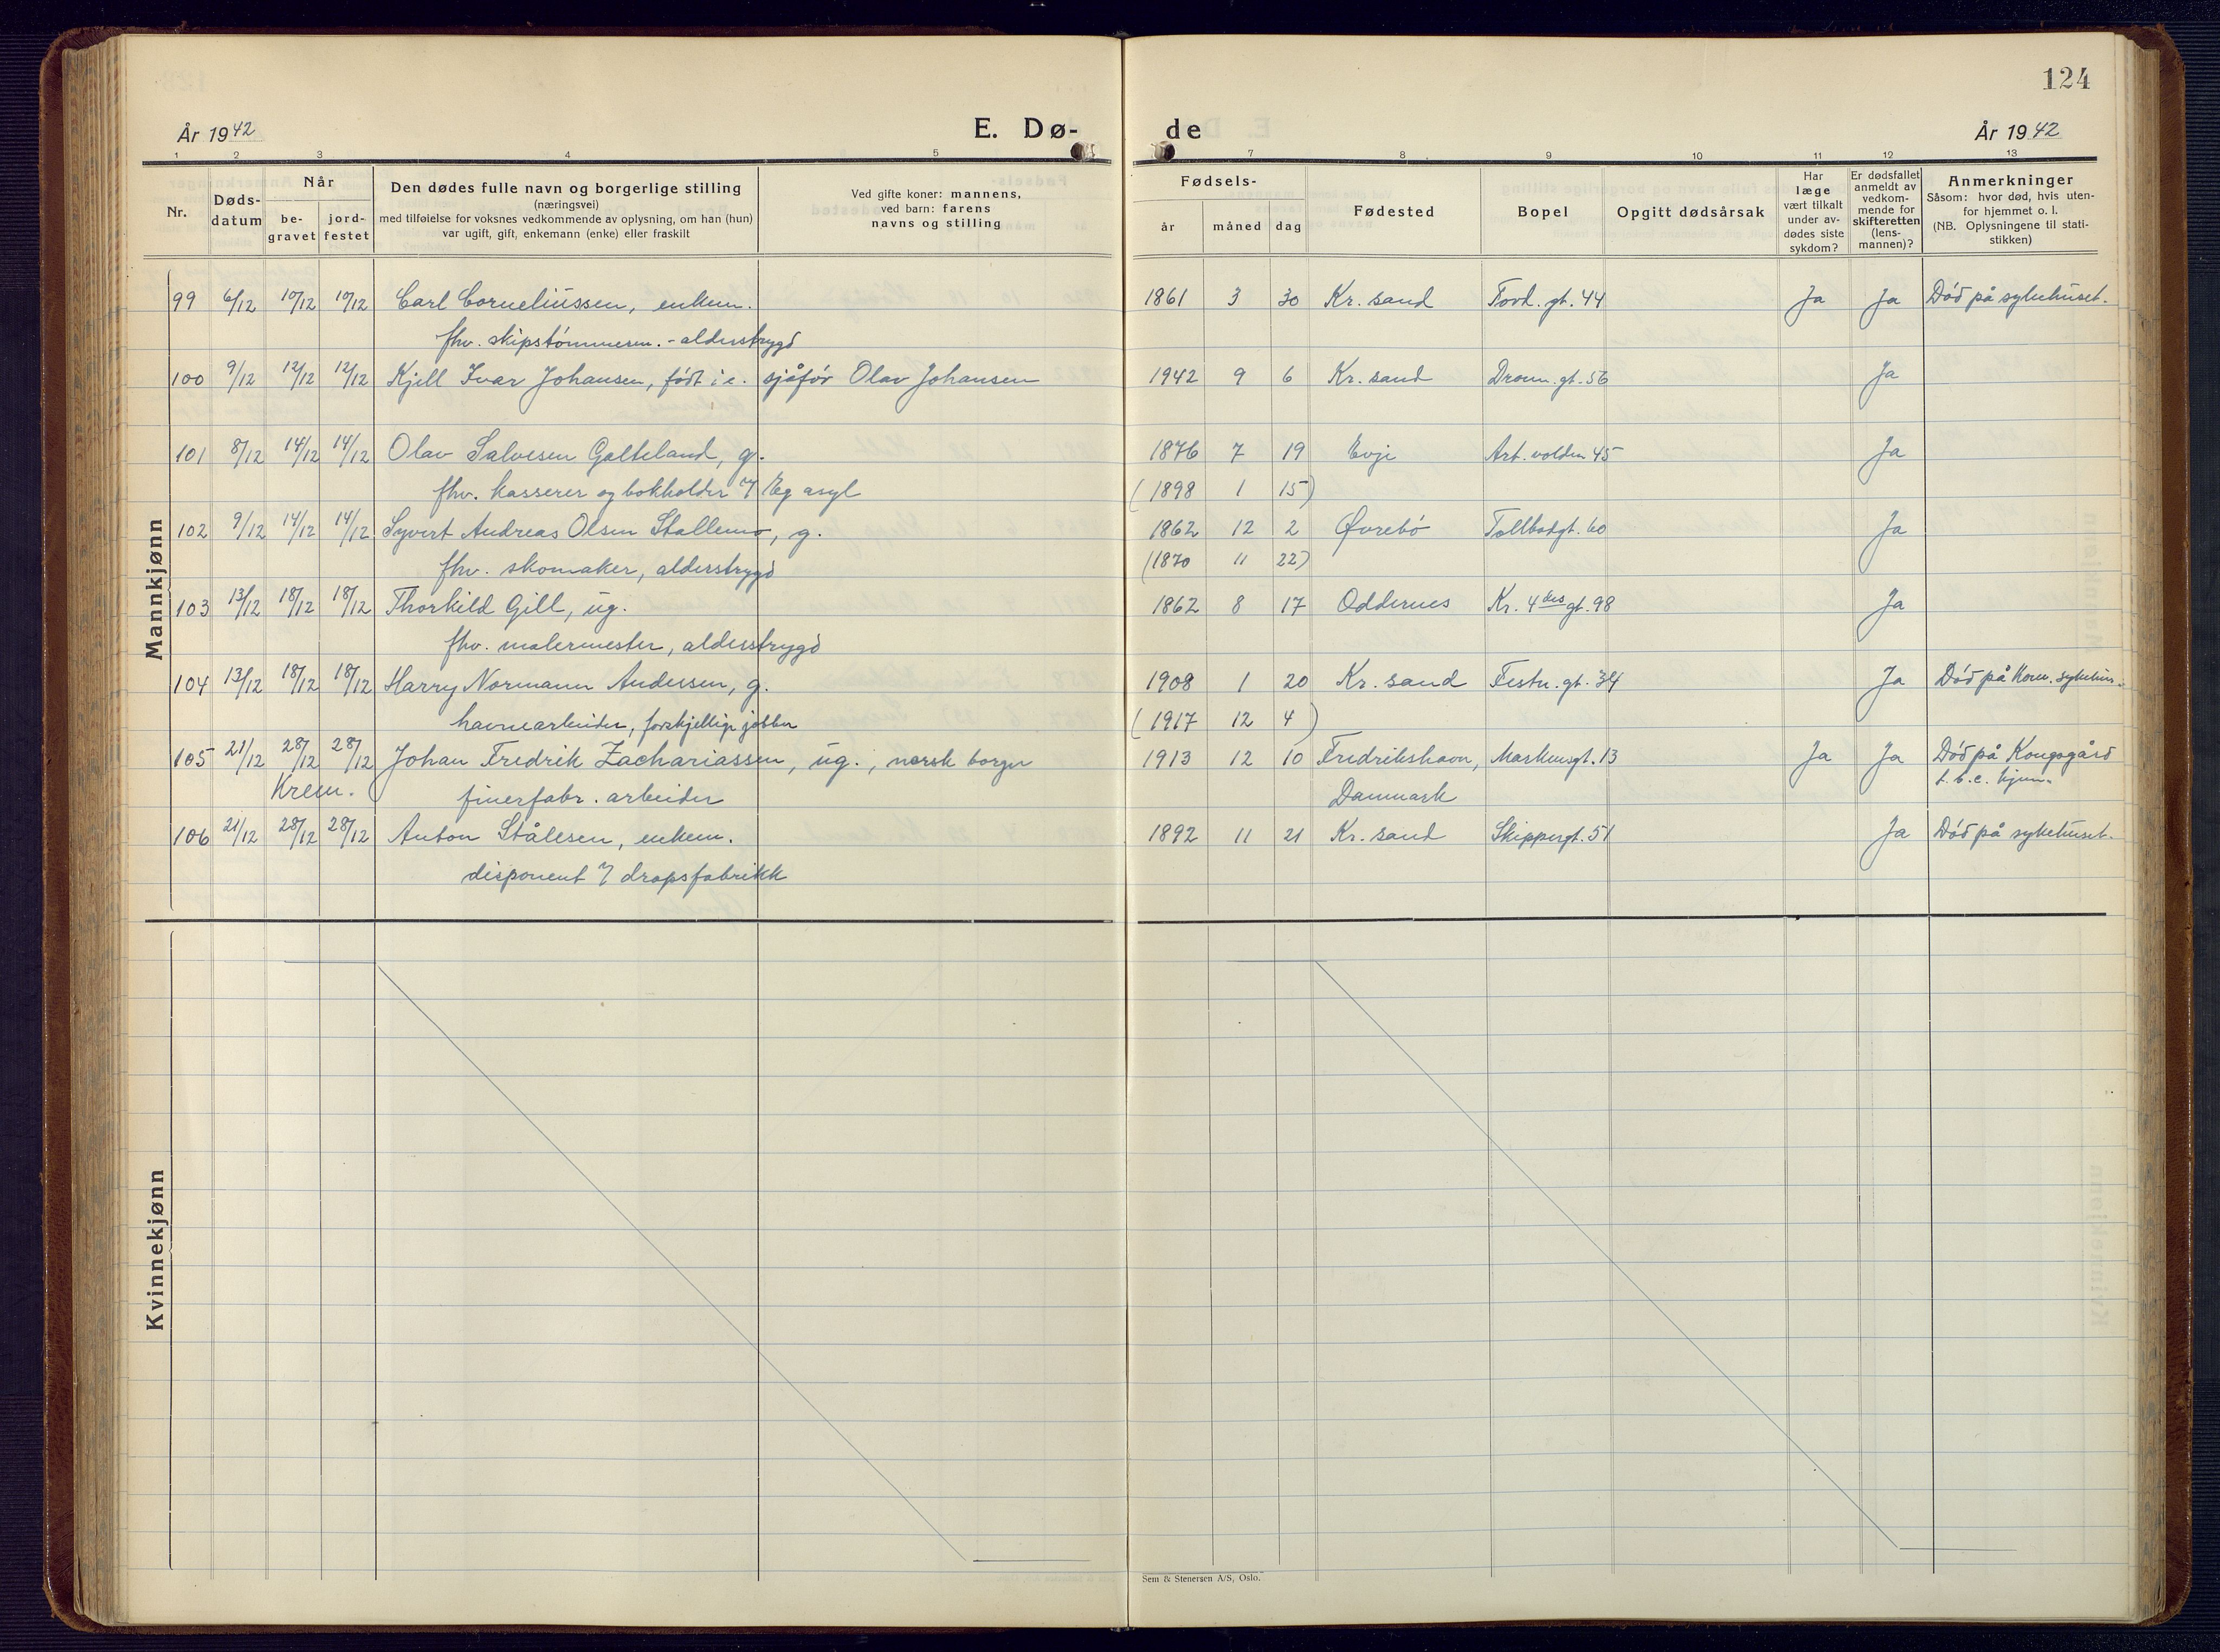 124
År 1942
E. Dø-
de
År 1942
1 2 3 4 5 7 8 9 10 11 12 13
Nr.
Døds-
datum
Når
be-
gravet
jord-
festet
Den dødes fulle navn og borgerlige stilling
(næringsvei)
med tilføielse for voksnes vedkommende av oplysning, om han (hun)
var ugift, gift, enkemann (enke) eller fraskilt
Ved gifte koner: mannens,
ved barn: farens
navns og stilling
Fødsels-
år måned dag
Fødested
Bopel
Opgitt dødsårsak
Har
læge
vært tilkalt
under av-
dødes siste
sykdom?
Er dødsfallet
anmeldt av
vedkom-
mende for
skifteretten
(lens-
mannen)?
Anmerkninger
Såsom: hvor død, hvis uten-
for hjemmet o. l.
(NB. Oplysningene til stati-
stikken)
Mannkjønn
99 6/12 10/12 10/12 Carl Corneliussen, enkem. 1861 3 30 Kr. sand Tord. gt. 44 Ja Ja Død på sykehuset.
fhv. skipstømmerm. - alderstrygd
100 9/12 12/12 12/12 Kjell Ivar Johansen, født i e. sjåfør Olav Johansen 1942 9 6 Kr. sand Dronn. gt. 56 Ja
101 8/12 14/12 14/12 Olav Salvesen Galteland, g. 1876 7 19 Evje Art. volden 45 Ja
fhv. kasserer og bokholder v/ Eg asyl (1898 1 15)
102 9/12 14/12 14/12 Syvert Andreas Olsen Stallemo, g. 1862 12 2 Øvrebø Tollbodgt. 60 Ja
fhv. skomaker, alderstrygd (1870 11 22)
103 13/12 18/12 18/12 Thorkild Gill, ug. 1862 8 17 Oddernes Kr. 4des gt. 98 Ja
fhv. malermester, alderstrygd
104 13/12 18/12 18/12 Harry Normann Andersen, g. 1908 1 20 Kr. sand Festn. gt. 34 Ja Død på Kom. sykehus.
havnearbeider, forskjellige jobber (1917 12 4)
105 21/12 28/12 28/12 Johan Fredrik Zachariassen, ug., norsk borger 1913 12 10 Fredrikshavn, Markensgt. 13 Ja Ja Død på Kongsgård
Krem. finerfabr. arbeider Danmark t.b.c. hjem.
106 21/12 28/12 28/12 Anton Stålesen, enkem. 1892 11 21 Kr. sand Skippergt. 51 Ja Død på sykehuset.
disponent v/ dropsfabrikk
Kvinnekjønn
Sem & Stenersen A/S, Oslo.